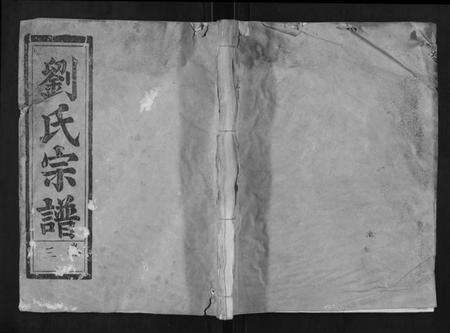 劉氏宗譜 二